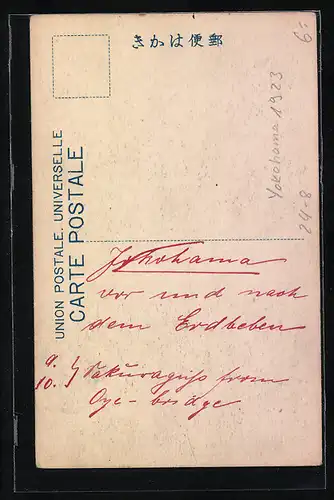 きかは便郵
UNION POSTALE. UNIVERSELLE
CARTE POSTALE
6.-
Yokohama 1923
24-8
Yokohama
vor und nach
dem Erdbeben
9. } Sakuragiho from
10. } Oye-bridge